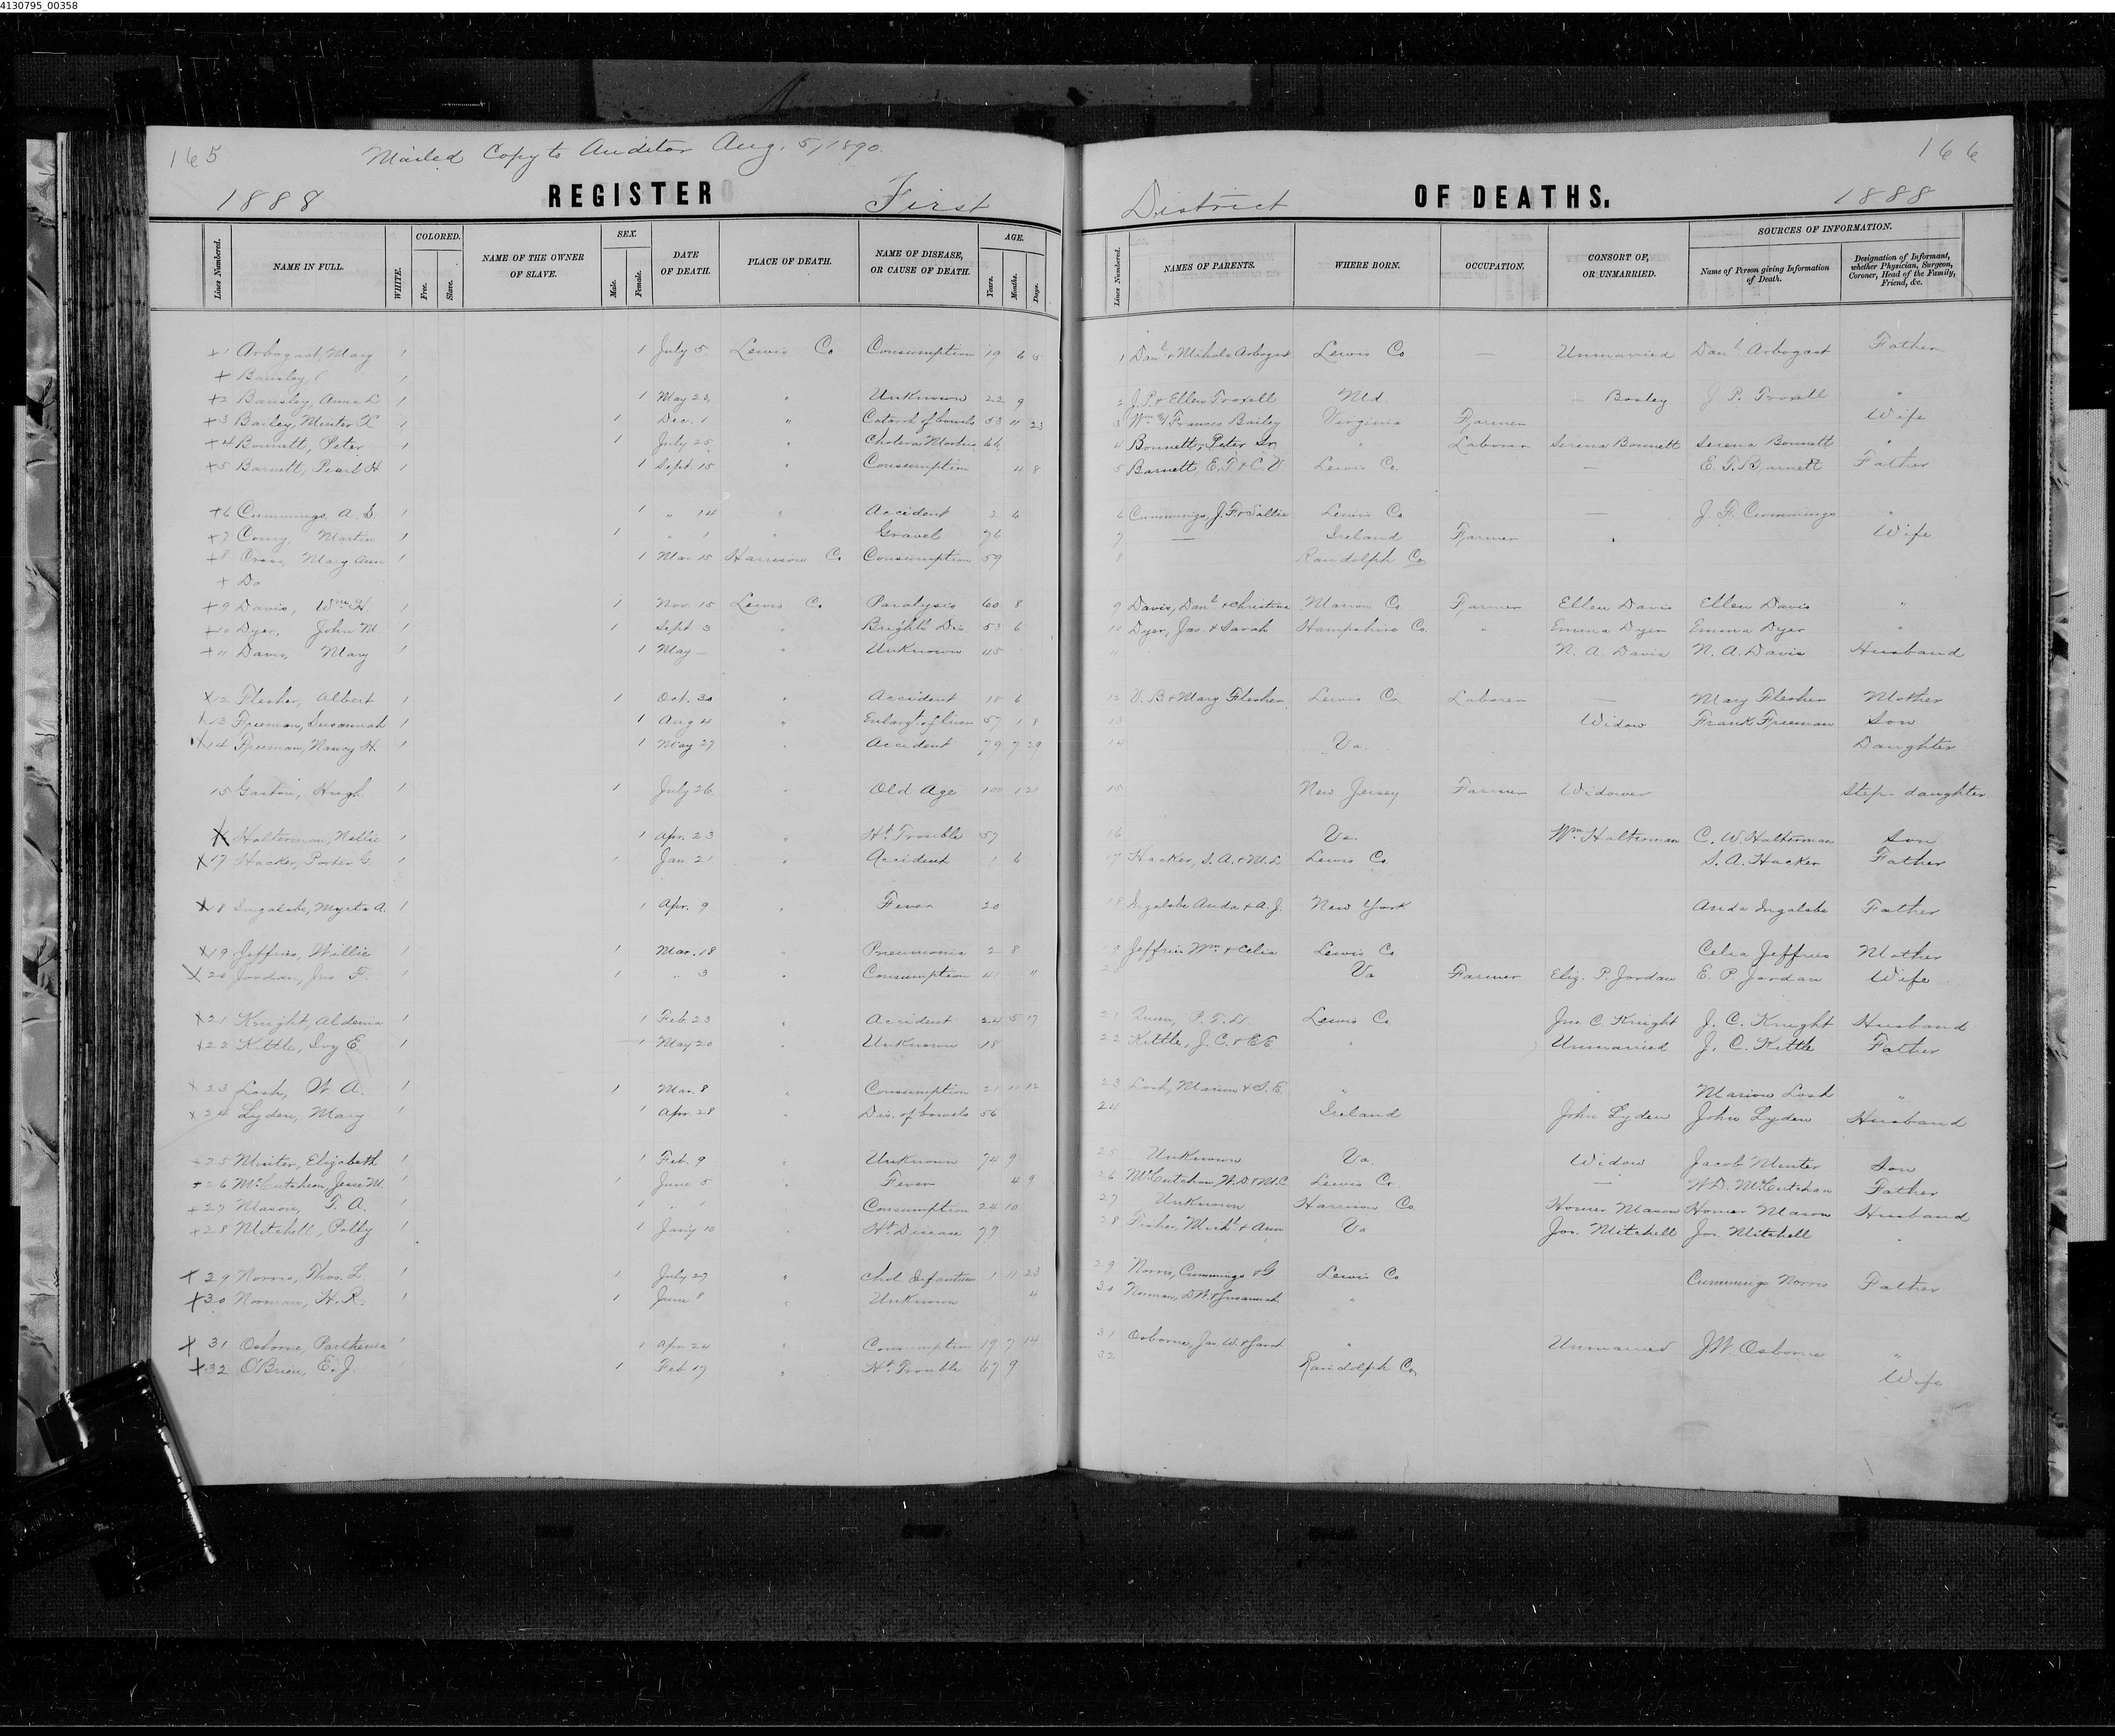 4130795_00358
165 Mailed Copy to Auditor Aug. 5, 1890. 166
1888 REGISTER First District OF DEATHS. 1888
Lines Numbered. NAME IN FULL. WHITE. COLORED. Free. Slave. NAME OF THE OWNER OF SLAVE. SEX. Male. Female. DATE OF DEATH. PLACE OF DEATH. NAME OF DISEASE, OR CAUSE OF DEATH. AGE. Years. Months. Days. Lines Numbered. NAMES OF PARENTS. WHERE BORN. OCCUPATION. CONSORT OF, OR UNMARRIED. SOURCES OF INFORMATION. Name of Person giving Information of Death. Designation of Informant, whether Physician, Surgeon, Coroner, Head of the Family, Friend, &c.
+1 Arbogast, Mary 1 1 July 5. Lewis Co Consumption 19 6 5 1 Danl & Mahala Arbogast Lewis Co — Unmarried Danl Arbogast Father
+ Bausley
+2 Bausley, Anna L 1 1 May 23, " Unknown 22 9 2 J. P. & Ellen Troxell Md — Bosley J. P. Troxell "
+3 Bailey, Minter K 1 1 Dec. 1 " Catarrh of bowels 53 11 23 3 Wm & Frances Bailey Virginia Farmer Wife
+4 Bonnett, Peter 1 1 July 25 " Cholera Morbus 66 4 Bonnett, Peter Sr. " Laborer Serena Bonnett Serena Bonnett "
+5 Barnett, Pearl H 1 1 Sept. 15 " Consumption 4 8 5 Barnett, E. T. & C. V. Lewis Co. — E. T. Barnett Father
+6 Cummings, A. S. 1 1 " 14 " Accident 2 6 6 Cummings, J. F. & Sallie Lewis Co — J. F. Cummings "
+7 Martin 1 1 " 1 " Gravel 76 7 — Ireland Farmer Wife
+8 Cross, Mary Ann 1 1 Mar 15 Harrison Co Consumption 59 8 Randolph Co
+ Do
+9 Davis, Wm H. 1 1 Nov. 15 Lewis Co. Paralysis 60 8 9 Davis, Danl & Christina Marion Co Farmer Ellen Davis Ellen Davis "
+10 Dyer, John M 1 1 Sept. 3 " Bright's Dis. 53 6 10 Dyer, Jas. & Sarah Hampshire Co. " Emma Dyer Emma Dyer "
+11 Davis, Mary 1 1 May — " Unknown 45 11 N. A. Davis N. A. Davis Husband
X12 Flesher, Albert 1 1 Oct. 30 " Accident 18 6 12 V. B. & Mary Flesher Lewis Co Laborer — Mary Flesher Mother
X13 Freeman, Susannah 1 1 Aug 4 " Enlargt. of liver 57 1 8 13 Widow Frank Freeman Son
X14 Freeman, Nancy H. 1 1 May 27 " Accident 79 7 29 14 Va. Daughter
15 Gaston, Hugh 1 1 July 26 Old Age 100 15 New Jersey Farmer Widower Step-daughter
X Halterman, Nellie 1 1 Apr. 23 " Ht. Trouble 57 16 Va. Wm Halterman C. W. Halterman Son
X17 Hacker, Porter G. 1 1 Jan 21 " Accident 1 6 17 Hacker, S. A. & M. L Lewis Co. S. A. Hacker Father
X18 Ingalsbe, Myrta A. 1 1 Apr. 9 " Fever 20 18 Ingalsbe Anda & A. J. New York Anda Ingalsbe Father
X19 Jeffries, Willie 1 1 Mar. 18 " Pneumonia 2 8 19 Jeffries Wm & Celia Lewis Co Celia Jeffries Mother
X20 Jordan, Jno. F. 1 1 " 3 " Consumption 41 " 20 Va Farmer Eliz. P. Jordan E. P. Jordan Wife
X21 Knight, Aldenia 1 1 Feb. 23 " Accident 24 5 17 21 Lewis Co Jno. C Knight J. C. Knight Husband
X22 Kittle, Ivy E. 1 1 May 20 " Unknown 18 22 Kittle, J. C. & E E " Unmarried J. C. Kittle Father
X23 Losh, W A. 1 1 Mar. 8 " Consumption 21 11 12 23 Losh, Marion & S. E. " " Marion Losh "
X24 Lyden, Mary 1 1 Apr. 28 " Dis. of bowels 56 24 Ireland John Lyden John Lyden Husband
+25 Minter, Elizabeth 1 1 Feb. 9 " Unknown 74 9 25 Unknown Va Widow Jacob Minter Son
+26 McCutcheon, Jesse M. 1 1 June 5 " Fever 4 9 26 McCutchan, W. D. & M. C Lewis Co — W. D. McCutchan Father
+27 Mason, T. A. 1 1 " 1 Consumption 24 10 27 Unknown Harrison Co. Homer Mason Homer Mason Husband
+28 Mitchell, Polly 1 1 Jany 10 " Ht. Disease 79 28 Fisher, Michl & Ann Va Jos. Mitchell Jos. Mitchell "
+29 Norris, Thos. L. 1 1 July 27 " Chol Infantum 1 11 23 29 Norris, Cummings & G Lewis Co Cummings Norris Father
+30 Norman, H. R. 1 1 June 8 " Unknown 4 30 Norman, D. W. & Susannah "
+31 Osborne, Parthenia 1 1 Apr 24 " Consumption 19 7 14 31 Osborne, Jas W. & Janet " Unmarried J. W. Osborne "
+32 O'Brien, E. J. 1 Feb 17 " Ht. Trouble 67 9 32 Randolph Co. Wife